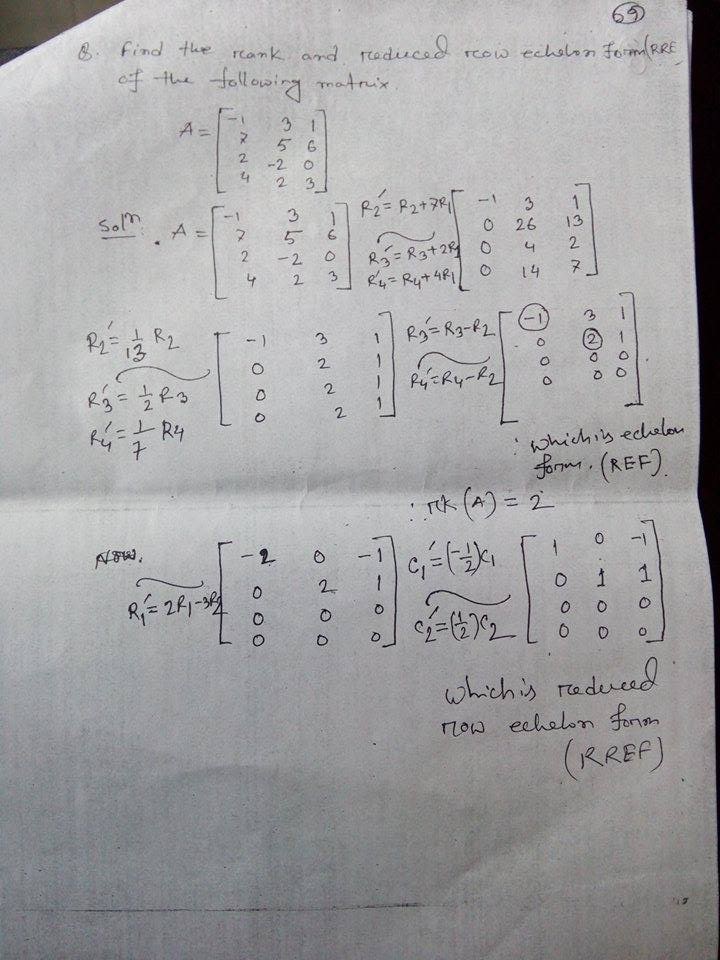 69
Q. Find the rank and reduced row echelon form (RRE
of the following matrix.
A = [ -1 3 1
7 5 6
2 -2 0
4 2 3 ]
Soln: . A = [ -1 3 1
7 5 6
2 -2 0
4 2 3 ]
R2′ = R2+7R1
R3′ = R3+2R1
R4′ = R4+4R1
[ -1 3 1
0 26 13
0 4 2
0 14 7 ]
R2′ = 1/13 R2
R3′ = 1/2 R3
R4′ = 1/7 R4
[ -1 3 1
0 2 1
0 2 1
0 2 1 ]
R3′ = R3-R2
R4′ = R4-R2
[ -1 3 1
0 2 1
0 0 0
0 0 0 ]
: which is echelon
form. (REF)
∴ rk (A) = 2
Now.
R1′ = 2R1-3R2
[ -2 0 -1
0 2 1
0 0 0
0 0 0 ]
C1′ = (-1/2)C1
C2′ = (1/2)C2
[ 1 0 -1
0 1 1
0 0 0
0 0 0 ]
which is reduced
row echelon form
(RREF)